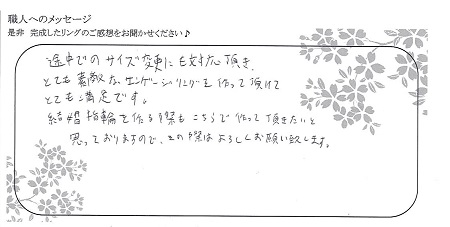 職人へのメッセージ
是非 完成したリングのご感想をお聞かせください♪
途中でのサイズ変更にも対応頂き、
とても素敵なエンゲージリングを作って頂けて
とても満足です。
結婚指輪を作る際もこちらで作って頂きたいと
思っておりますので、その際はよろしくお願い致します。